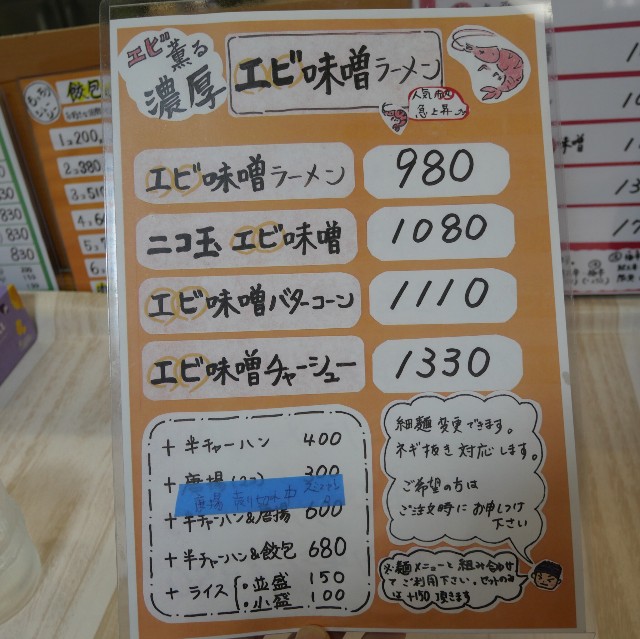 エビ薫る
濃厚
エビ味噌ラーメン
人気
急上昇
エビ味噌ラーメン 980
ニコ玉 エビ味噌 1080
エビ味噌バターコーン 1110
エビ味噌チャーシュー 1330
+半チャーハン 400
+唐揚(2コ) 300
+半チャーハン&唐揚 600
+半チャーハン&餃包 680
+ライス ・並盛 150
・小盛 100
細麺変更できます。
ネギ抜き対応します。
ご希望の方は
ご注文時にお申しつけ
下さい
※麺メニューと組み合わせ
てご利用下さい。セットのみ
は+150頂きます
餃包
1コ200
2コ380
830
830